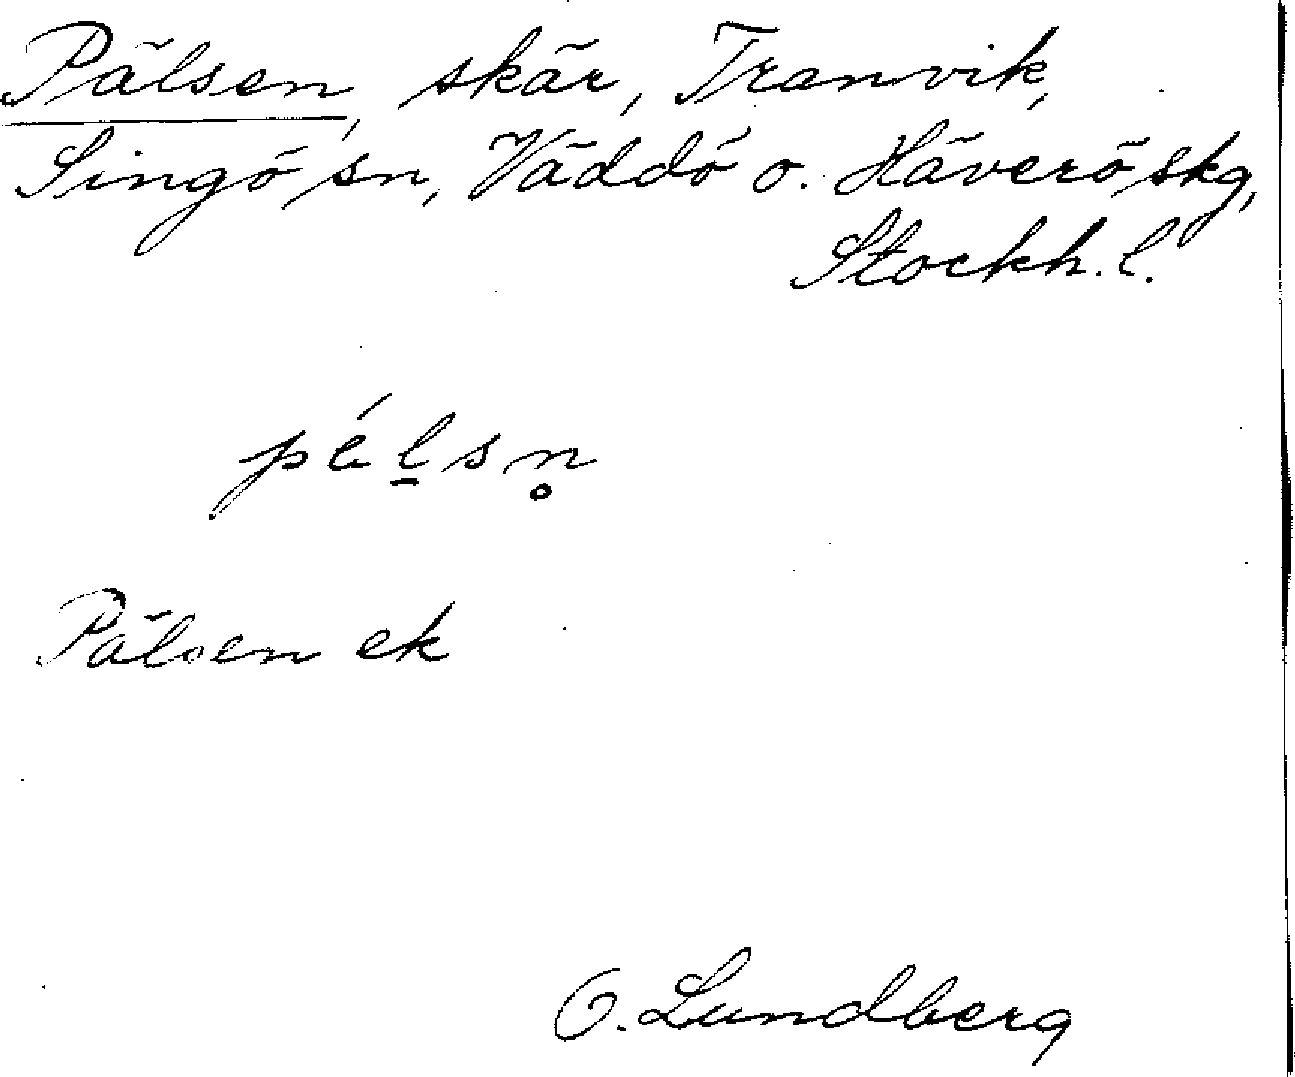 Pälsen, skär, Tranvik,
Singö sn, Väddö o. Häverö skg,
Stockh. l.
pélsn̥
Pälsen ek
O. Lundberg